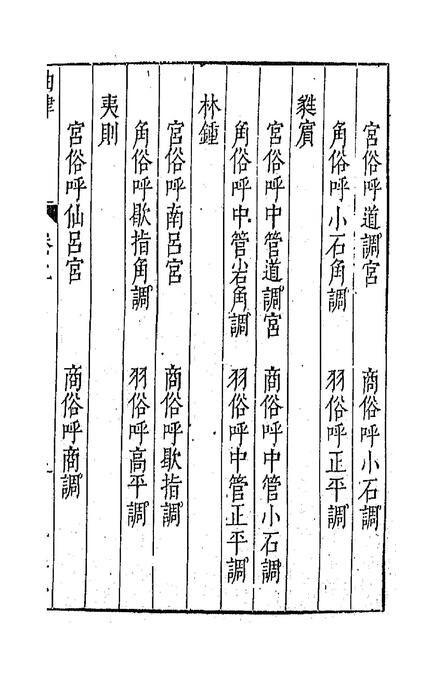 宮俗呼道調宮　商俗呼小石調
角俗呼小石角調　羽俗呼正平調
蕤賓
宮俗呼中管道調宮　商俗呼中管小石調
角俗呼中管小石角調　羽俗呼中管正平調
林鍾
宮俗呼南呂宮　商俗呼歇指調
角俗呼歇指角調　羽俗呼高平調
夷則
宮俗呼仙呂宮　商俗呼商調
曲律